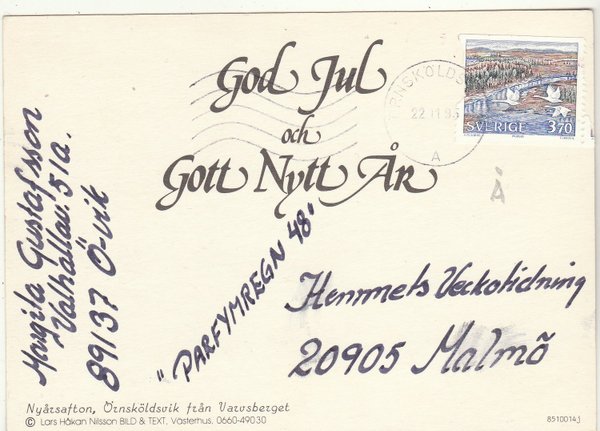 God Jul
och
Gott Nytt År
ÖRNSKÖLDS
22 11 95
A
SVERIGE 3.70
Å
Margita Gustafsson
Valhallav. 51a.
89137 Ö-vik
"PARFYMREGN 48"
Hemmets Veckotidning
20905 Malmö
Nyårsafton, Örnsköldsvik från Varvsberget
© Lars Håkan Nilsson BILD & TEXT, Västerhus, 0660-49030
8510014 j